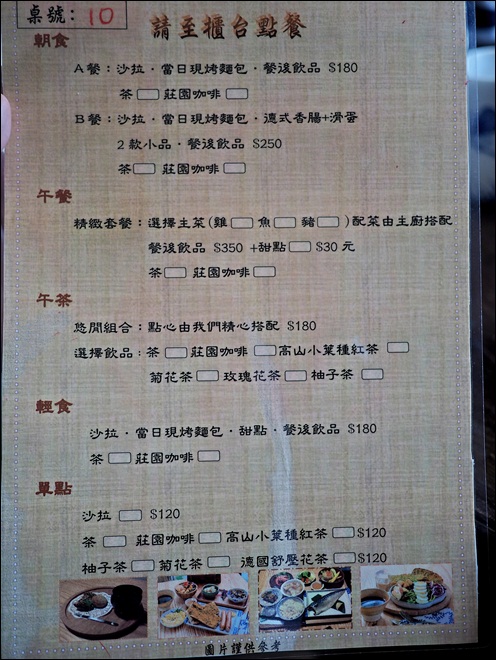 桌號: 10
請至櫃台點餐
朝食
A餐：沙拉·當日現烤麵包·餐後飲品 $180
茶 莊園咖啡
B餐：沙拉·當日現烤麵包·德式香腸+滑蛋
2款小品·餐後飲品 $250
茶 莊園咖啡
午餐
精緻套餐：選擇主菜(雞 魚 豬 )配菜由主廚搭配
餐後飲品 $350 +甜點 $30元
茶 莊園咖啡
午茶
悠閒組合：點心由我們精心搭配 $180
選擇飲品：茶 莊園咖啡 高山小葉種紅茶
菊花茶 玫瑰花茶 柚子茶
輕食
沙拉·當日現烤麵包·甜點·餐後飲品 $180
茶 莊園咖啡
單點
沙拉 $120
茶 莊園咖啡 高山小葉種紅茶 $120
柚子茶 菊花茶 德國舒壓花茶 $120
圖片謹供參考